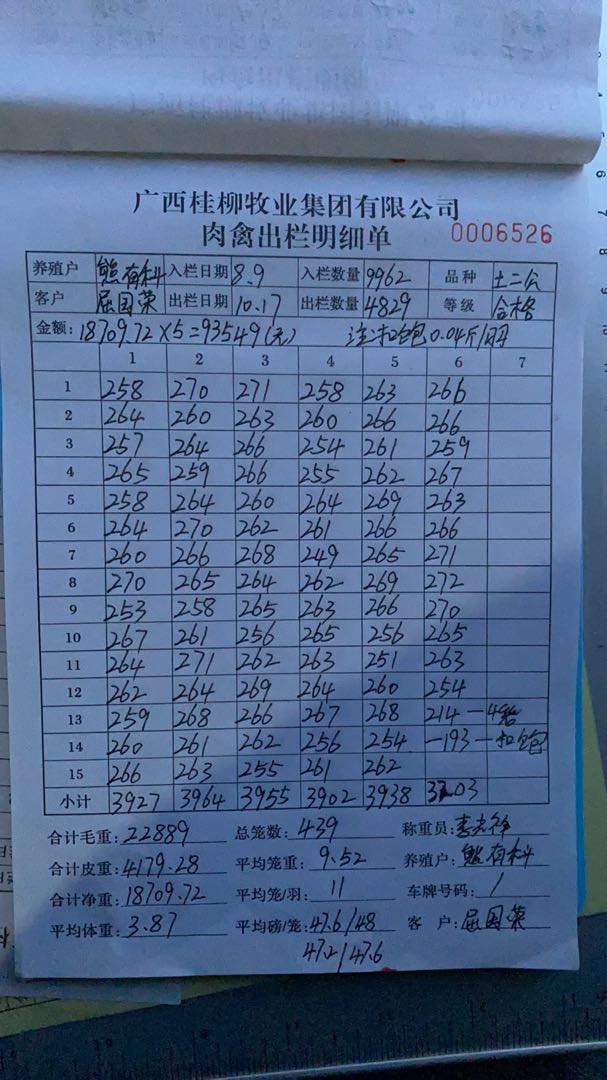 广西桂柳牧业集团有限公司
肉禽出栏明细单 0006526
养殖户 熊有科 入栏日期 8.9 入栏数量 9962 品种 土二公
客户 屈国荣 出栏日期 10.17 出栏数量 4829 等级 合格
金额: 18709.72×5=93549(元) 注扣饱0.04斤/羽
1 2 3 4 5 6 7
1 258 270 271 258 263 266
2 264 260 263 260 266 266
3 257 264 266 254 261 259
4 265 259 266 255 262 267
5 258 264 260 264 269 263
6 264 270 262 261 266 266
7 260 266 268 249 265 271
8 270 265 264 262 269 272
9 253 258 265 263 266 270
10 267 261 256 265 256 265
11 264 271 262 263 251 263
12 262 264 269 264 260 254
13 259 268 266 267 268 214 — 4笼
14 260 261 262 256 254 -193 — 扣饱
15 266 263 255 261 262
小计 3927 3964 3955 3902 3938 3203
合计毛重: 22889 总笼数: 439 称重员:
合计皮重: 4179.28 平均笼重: 9.52 养殖户: 熊有科
合计净重: 18709.72 平均笼/羽: 11 车牌号码: /
平均体重: 3.87 平均磅/笼: 47.6/48 客户: 屈国荣
47.2/47.6